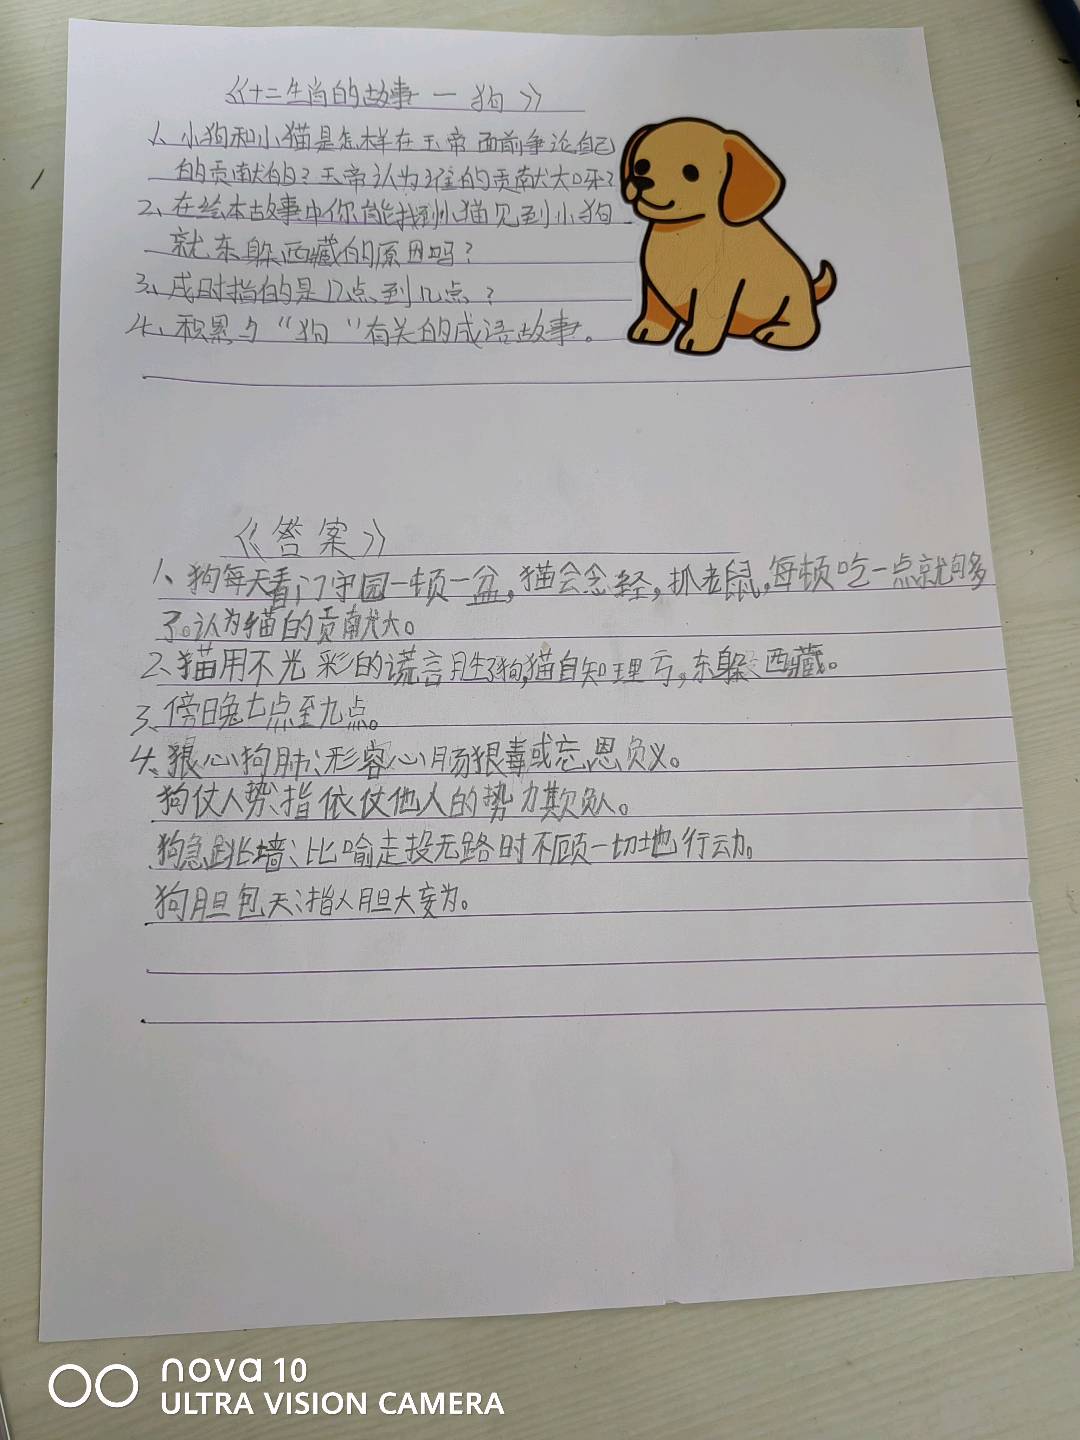 《十二生肖的故事一狗》
1、小狗和小猫是怎样在玉帝面前争论自己
的贡献的？玉帝认为谁的贡献大呀？
2、在绘本故事中你能找到小猫见到小狗
就东躲西藏的原因吗？
3、戌时指的是几点到几点？
4、积累与“狗”有关的成语故事。
《答案》
1、狗每天看门守园一顿一盆,猫会念经,抓老鼠,每顿吃一点就够多
了。认为猫的贡献大。
2、猫用不光彩的谎言胜了狗,猫自知理亏,东躲西藏。
3、傍晚七点至九点。
4、狼心狗肺：形容心肠狠毒或忘恩负义。
狗仗人势：指依仗他人的势力欺负人。
狗急跳墙：比喻走投无路时不顾一切地行动。
狗胆包天：指人胆大妄为。
nova 10
ULTRA VISION CAMERA